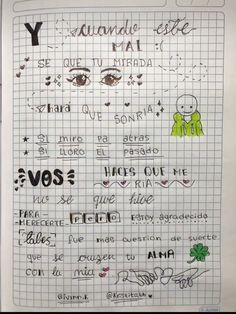 Y cuando este
MAL :(
SE QUE TU MIRADA
hará QUE SONRIA
Si miro pa atras
Si LLORO EL pasado
VOS HACES QUE ME
RIA
no se que hice
PARA
MERECERTE pero estoy agradecido
Tales fue mas cuestion de suerte
que se crucen tu ALMA
con la mia